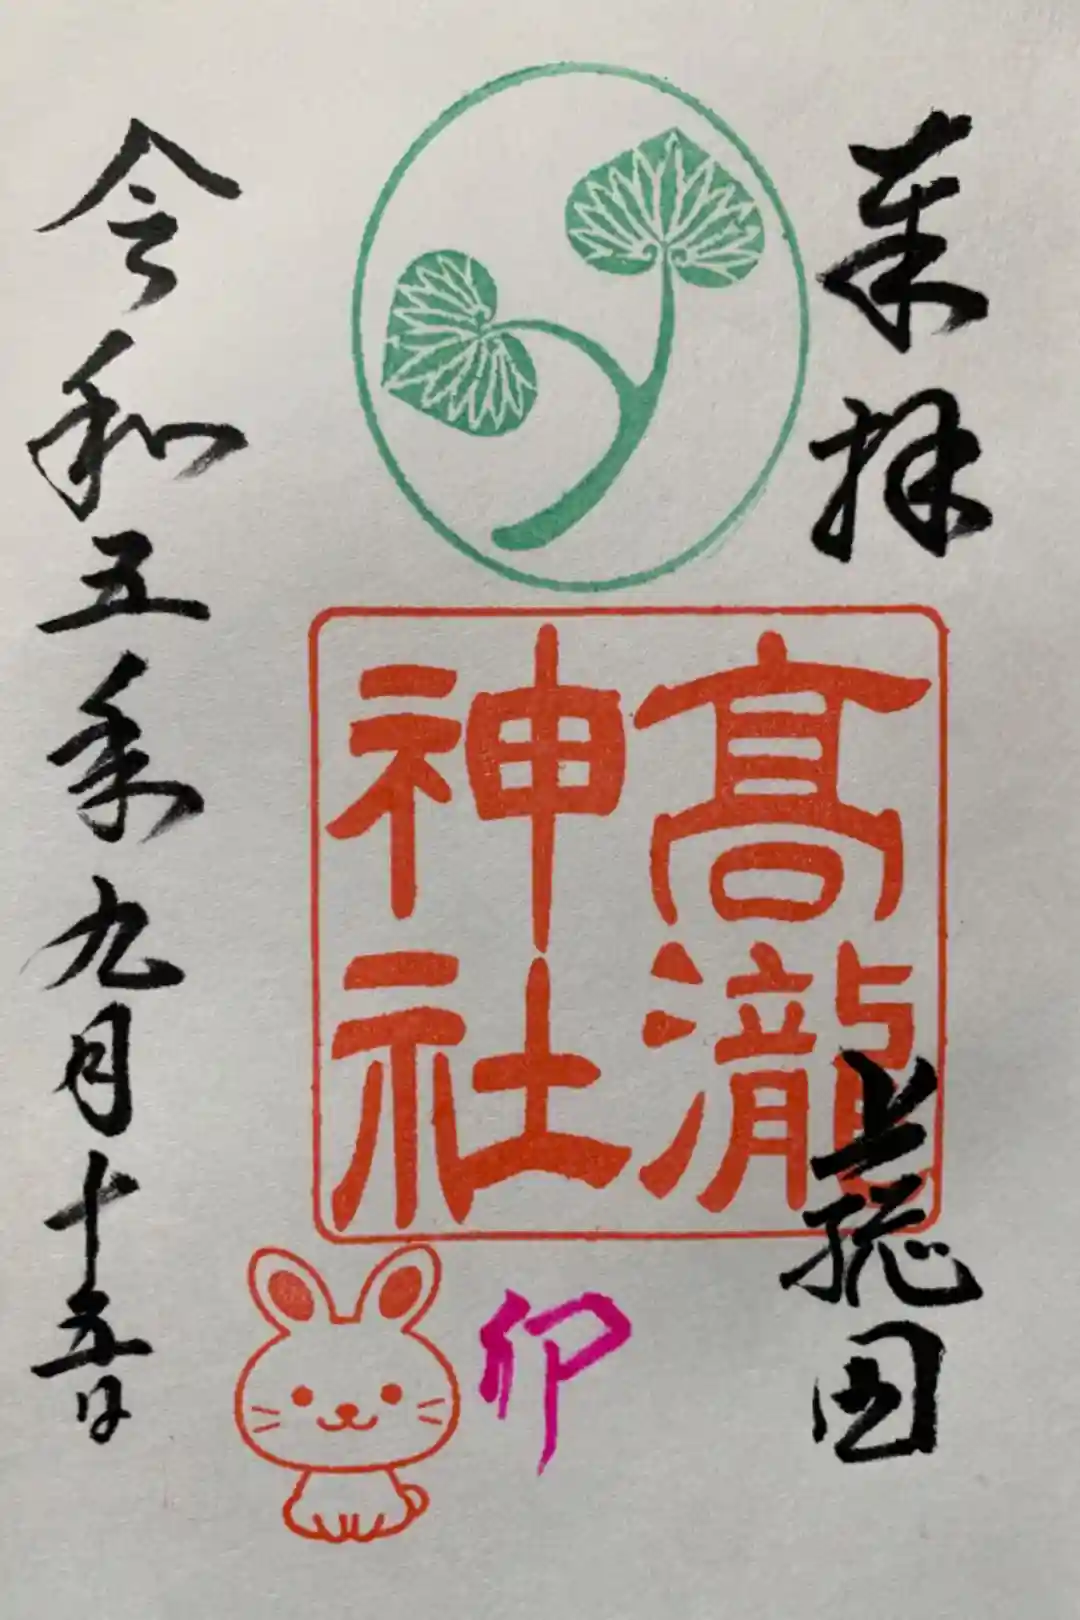 奉拝
上総国
髙瀧
神社
卯
令和五年九月十五日